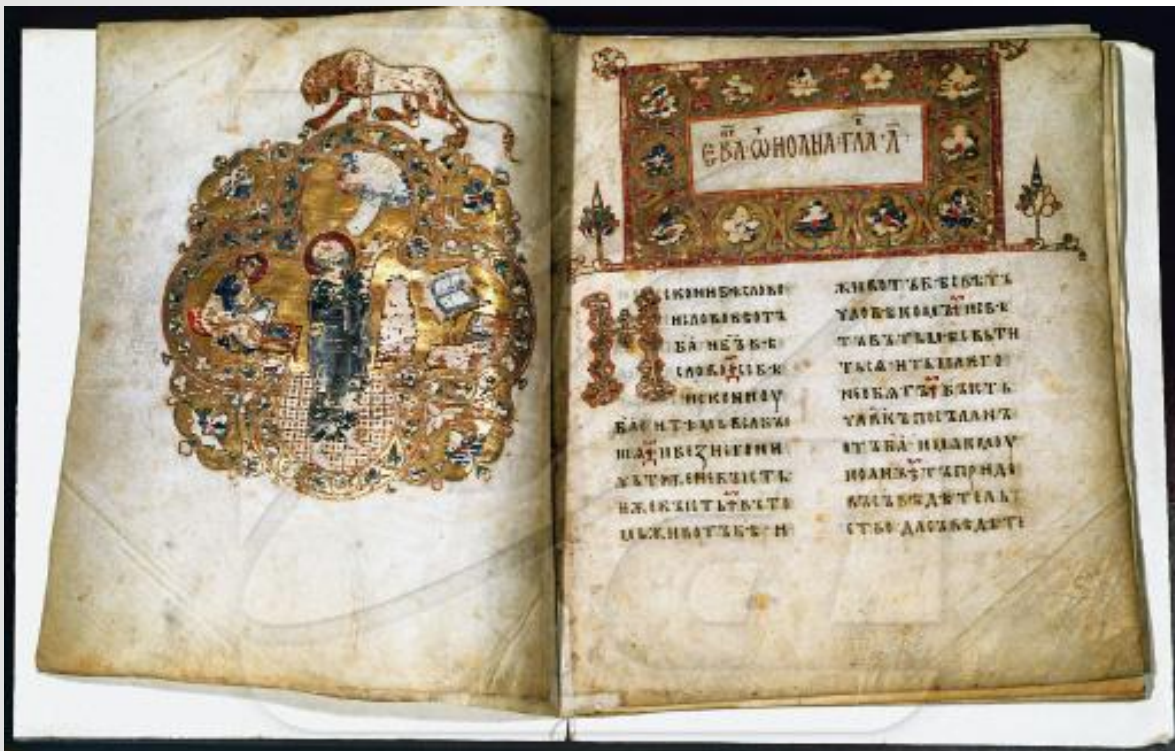 ЕВАⷢ҇ ѾИОАНА·ГЛА·А҃·
ИСКОНИ БѢ СЛОВО
И СЛОВО БѢ ОТЪ
БА҃ И БЪ҃ БѢ
СЛОВО СЕ БѢ
ИСКОНИ ОУ
БА҃ И ТѢМЬ ВЬСѦ БꙐ
ШѦ И БЕЗ НЕГО НИ
ЧЬТОЖЕ НЕ БꙐСТЬ
ѤЖЕ БꙐСТЬ ВЪ ТО
МЬ ЖИВОТЪ БѢ И
ЖИВОТЪ БѢ СВѢТЪ
ЧЛОВѢКОМЪ И СВѢ
ТЪ ВЪ ТЬМѢ СВЬТИ
ТЬСѦ И ТЬМА ѤГО
НЕ ОБѦТЪ БꙐСТЬ
ЧЛВ҃КЪ ПОСЪЛАНЪ
ОТЪ БА҃ ИМѦ ѤМОУ
ИОАНЪ ТЪ ПРИДЕ
ВЪ СЪВѢДѢТЕЛЬ
СТВО ДА СЪВѢДѢТЕ